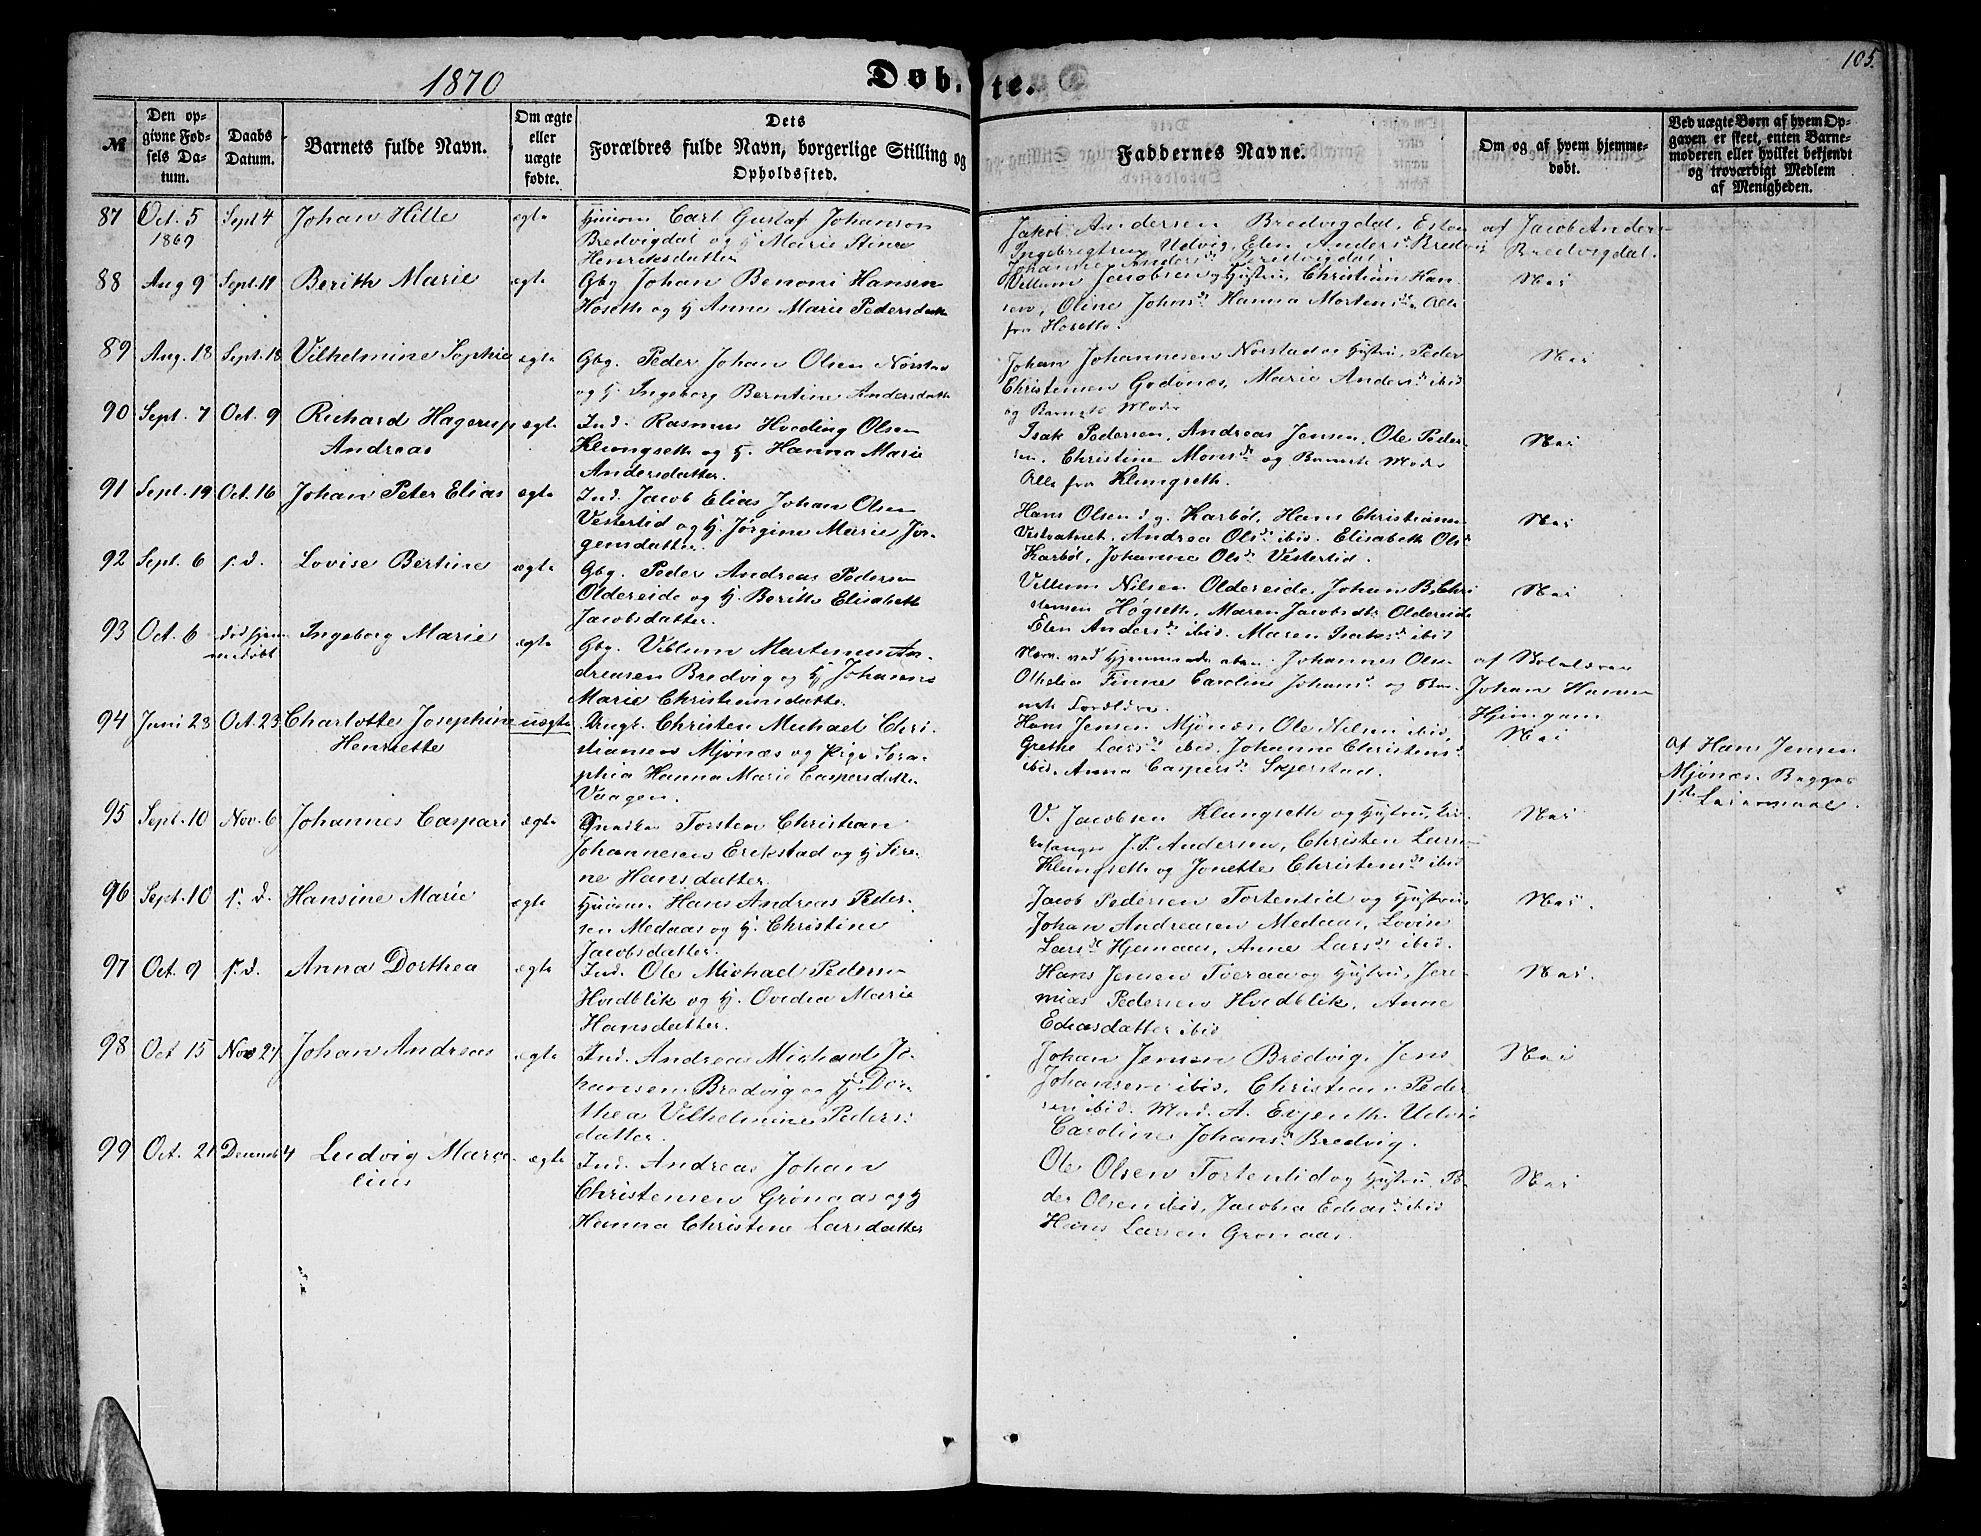 1870
Døbte.
105.
№
Den op-
givne Fød-
sels Da-
tum.
Daabs
Datum.
Barnets fulde Navn.
Om ægte
eller
uægte
fødte.
Dets
Forældres fulde Navn, borgerlige Stilling og
Opholdssted.
Faddernes Navne.
Om og af hvem hjemme-
døbt.
Ved uægte Børn af hvem Op-
gaven er skeet, enten Barne-
moderen eller hvilket bekjendt
og troværdigt Medlem
af Menigheden.
87 Oct. 5 Sept 4 Johan Hille ægte Huusm Carl Gustaf Johanson
1869
Bredvigdal og H Marie Stina
Henriksdatter
Jakob Andersen Bredvigdal, Eston
Ingebrigtsen Udvig, Elen Andersd Bredvig
Johanne Andersd Bredvigdal.
af Jacob Anders-
Bredvigdal.
88 Aug 9 Sept. 11 Berith Marie ægte Gbg Johan Benoni Hansen
Hoseth og H Anne Marie Pedersdatte
Villum Jacobsen og Hustru, Christian Han-
sen, Oline Johnsd. Hanna Mortensd. Alle
fra Hoseth.
Nei
89 Aug. 18 Sept. 18 Vilhelmine Sophie ægte Gbg. Peder Johan Olsen Nørstad
og H. Ingeborg Berntine Andersdatte
Johan Johannesen Norstad og Hustru, Peder
Christensen Godønes, Marie Andersd. ibid
og Barnets Moder
Nei
90 Sept. 7 Oct. 9 Richard Hagerup ægte Ind. Rasmus Hveding Olsen
Andreas
Klungseth og H. Hanna Marie
Andersdatter.
Isak Pedersen, Andreas Jensen, Ole Peder-
sen. Christine Monsd og Barnets Moder
Alle fra Klungseth.
Nei
91 Sept. 19 Oct. 16 Johan Peter Elias ægte Ind. Jacob Elias Johan Olsen
Vestertid og H. Jørgine Marie Jør-
gensdatter.
Hans Olsen Karbøl, Hans Christiansen
Vestvatnet. Andrea Olsd ibid. Elisabeth Olsd
Karbøl, Johanna Olsd Vestertid.
Nei
92 Sept. 6 s.d. Lovise Bertine ægte Gbg. Peder Andreas Pedersen
Oldereide og H. Berith Elisabeth
Jacobsdatter.
Villum Nilsen Oldereide, Johan B. Chri
stensen Høgseth, Maren Jacobsdtr Oldereide
Elen Andersd ibid. Maren Isaksd ibid
Nei
93 Oct. 6 død hjem Ingeborg Marie ægte Gbg. Villum Martinus An-
medøbt
dreasen Bredvig og H Johanne
Marie Christiansdatte.
Nærv. ved Hjemmedaaben: Johannes Olsen
Othelia Finne Caroline Johansd og Bar-
nets Forældre.
af Skolelærer
Johan Hansen
Hjemgam
94 Juni 23 Oct. 23 Charlotte Josephine uægte Ungk. Christen Michael Chri
Henriette
stiansen Mjønæs og Pige Sera-
phia Hanna Marie Caspersdatte
Vaagen.
Hans Jensen Mjønæs, Ole Nilsen ibid,
Grethe Larsd ibid, Johanna Christensd
ibid, Anna Caspersd Skjerstad.
Nei
af Hans Jensen
Mjønæs. Begges
1ste Leiermaal.
95 Sept. 10 Nov. 6 Johannes Caspari ægte Torsten Christian
Johannesen Erikstad og H Sire-
ne Hansdatter.
V. Jacobsen Klungseth og Hustru, Kir
kesanger J. P. Andersen, Christen Larsen
Klungseth og Jonette Christensd ibid
Nei
96 Sept. 10 s. d. Hansine Marie ægte Huusm. Hans Andreas Peder-
sen Medaas og H. Christine
Jacobsdatter.
Jacob Pedersen Tortenlid og Hustru
Johan Andreasen Medaas, Lovise
Larsd Hjemaas, Anne Larsd ibid.
Nei.
97 Oct. 9 s.d. Anna Dorthea ægte Ind. Ole Michael Pedersen
Hvidblik og H. Ovedia Marie
Hansdatter.
Hans Jensen Tveraa og Hustru, Jere-
mias Pedersen Hvidblik, Anne
Ediasdatter ibid
Nei.
98 Oct 15 Nov 27 Johan Andreas ægte Ind. Andreas Michael Jo-
hansen Bredvig og H Dor-
thea Vilhelmine Peders-
datter.
Johan Jensen Bredvig, Jens
Johansen ibid. Christian Peder-
sen ibid. Mad. A. Evjenth. Udvig
Caroline Johansd. Bredvig.
Nei
99 Oct. 21 Decemb 4 Ludvig Marce- ægte Ind. Andreas Johan
lius
Christensen Grønaas og H
Hanna Christine Larsdatter
Ole Olsen Tortenlid og Hustru, Pe-
der Olsen ibid, Jacobia Ediasd ibid
Hans Larsen Grønaas.
Nei